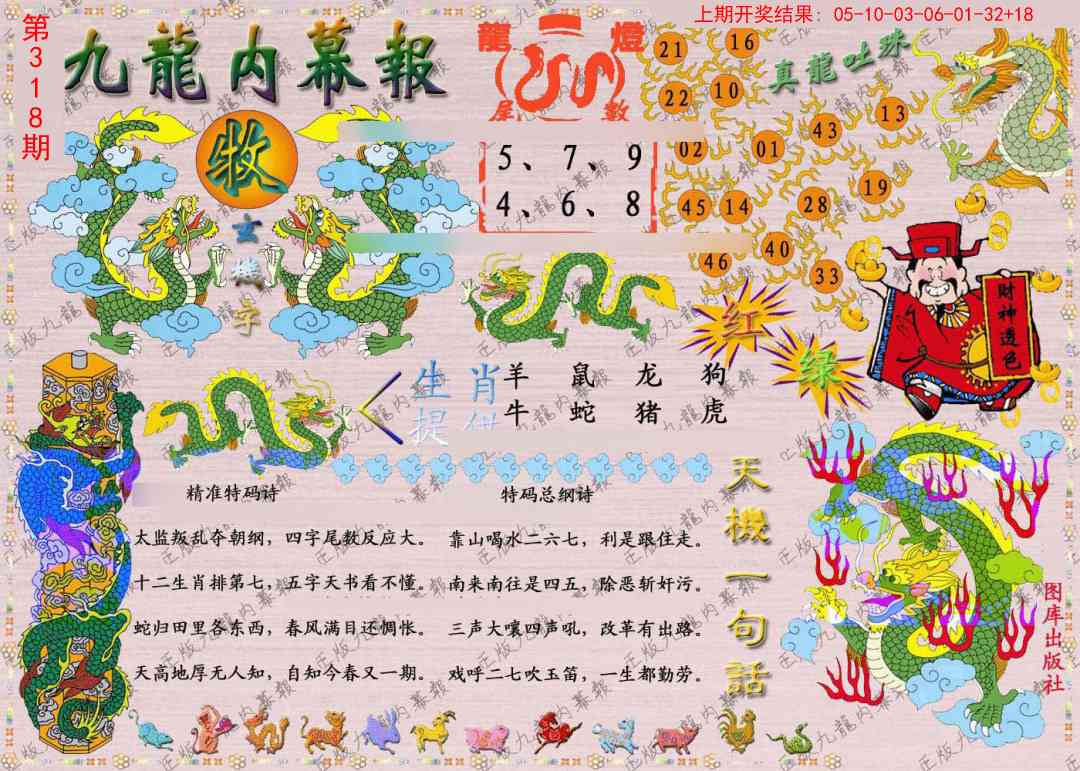 上期开奖结果：05-10-03-06-01-32+18
第318期
九龍内幕報
龍燈
尾數
真龍吐珠
21 16
22 10
13
43
02 01
19
45 14 28
40
46 33
牧
玄機字
5、7、9
4、6、8
财神透色
红
绿
生肖
提供
羊 鼠 龙 狗
牛 蛇 猪 虎
精准特码诗
太监叛乱夺朝纲，四字尾数反应大。
十二生肖排第七，五字天书看不懂。
蛇归田里各东西，春风满目还惆怅。
天高地厚无人知，自知今春又一期。
特码总纲诗
靠山喝水二六七，利是跟住走。
南来南往是四五，除恶斩奸污。
三声大嚷四声吼，改革有出路。
戏呼二七吹玉笛，一生都勤劳。
天機一句話
图库出版社
正版九龍内幕報